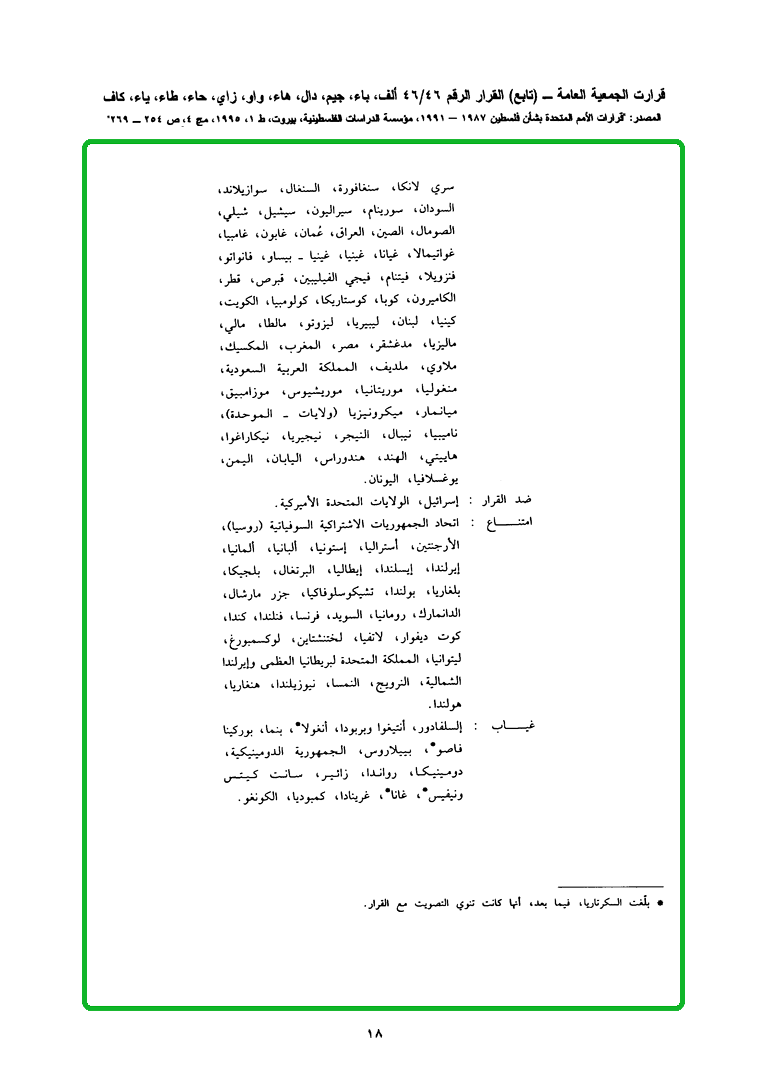 قرارت الجمعية العامة ــ (تابع) القرار الرقم ٤٦/٤٦ ألف، باء، جيم، دال، هاء، واو، زاي، حاء، طاء، ياء، كاف
المصدر: "قرارات الأمم المتحدة بشأن فلسطين ١٩٨٧ – ١٩٩١، مؤسسة الدراسات الفلسطينية، بيروت، ط ١، ١٩٩٥، مج ٤، ص ٢٥٤ ــ ٢٦٩"
سري لانكا، سنغافورة، السنغال، سوازيلاند،
السودان، سورينام، سيراليون، سيشيل، شيلي،
الصومال، الصين، العراق، عُمان، غابون، غامبيا،
غواتيمالا، غيانا، غينيا، غينيا ـ بيساو، فانواتو،
فنزويلا، فيتنام، فيجي الفيليبين، قبرص، قطر،
الكاميرون، كوبا، كوستاريكا، كولومبيا، الكويت،
كينيا، لبنان، ليبيريا، ليزوتو، مالطا، مالي،
ماليزيا، مدغشقر، مصر، المغرب، المكسيك،
ملاوي، ملديف، المملكة العربية السعودية،
منغوليا، موريتانيا، موريشيوس، موزامبيق،
ميانمار، ميكرونيزيا (ولايات ـ الموحدة)،
ناميبيا، نيبال، النيجر، نيجيريا، نيكاراغوا،
هاييتي، الهند، هندوراس، اليابان، اليمن،
يوغسلافيا، اليونان.
ضد القرار : إسرائيل، الولايات المتحدة الأميركية.
امتنــــاع : اتحاد الجمهوريات الاشتراكية السوفياتية (روسيا)،
الأرجنتين، أستراليا، إستونيا، ألبانيا، ألمانيا،
إيرلندا، إيسلندا، إيطاليا، البرتغال، بلجيكا،
بلغاريا، بولندا، تشيكوسلوفاكيا، جزر مارشال،
الدانمارك، رومانيا، السويد، فرنسا، فنلندا، كندا،
كوت ديفوار، لاتفيا، لختنشتاين، لوكسمبورغ،
ليتوانيا، المملكة المتحدة لبريطانيا العظمى وإيرلندا
الشمالية، النرويج، النمسا، نيوزيلندا، هنغاريا،
هولندا.
غيــــاب : إلسلفادور، أنتيغوا وبربودا، أنغولا•، بنما، بوركينا
فاصو•، بييلاروس، الجمهورية الدومينيكية،
دومينيكـا، روانـدا، زائـيـر، سـانـت كـيـتـس
ونيفيس•، غانا•، غرينادا، كمبوديا، الكونغو.
• بلّغت السكرتاريا، فيما بعد، أنها كانت تنوي التصويت مع القرار.
١٨